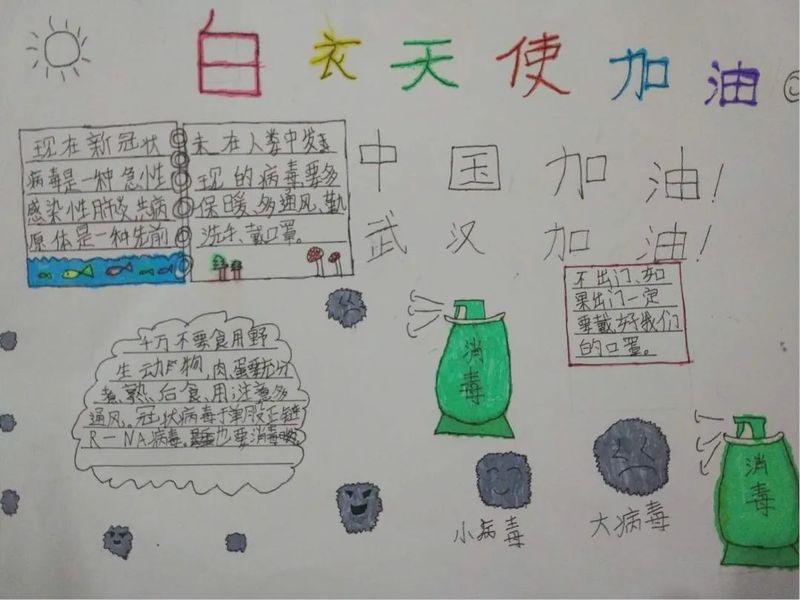 白衣天使加油
现在新冠状
病毒是一种急性
感染性肺炎,其病
原体是一种先前
未在人类中发
现的病毒,要多
保暖、多通风、勤
洗手、戴口罩。
中国加油!
武汉加油!
不出门、如
果出门一定
要戴好我们
的口罩。
千万不要食用野
生动物,肉、蛋要充分
煮、熟、后食、用注意多
通风。冠状病毒于单股正链
R-NA病毒。也要消毒
消毒
小病毒
大病毒
消毒